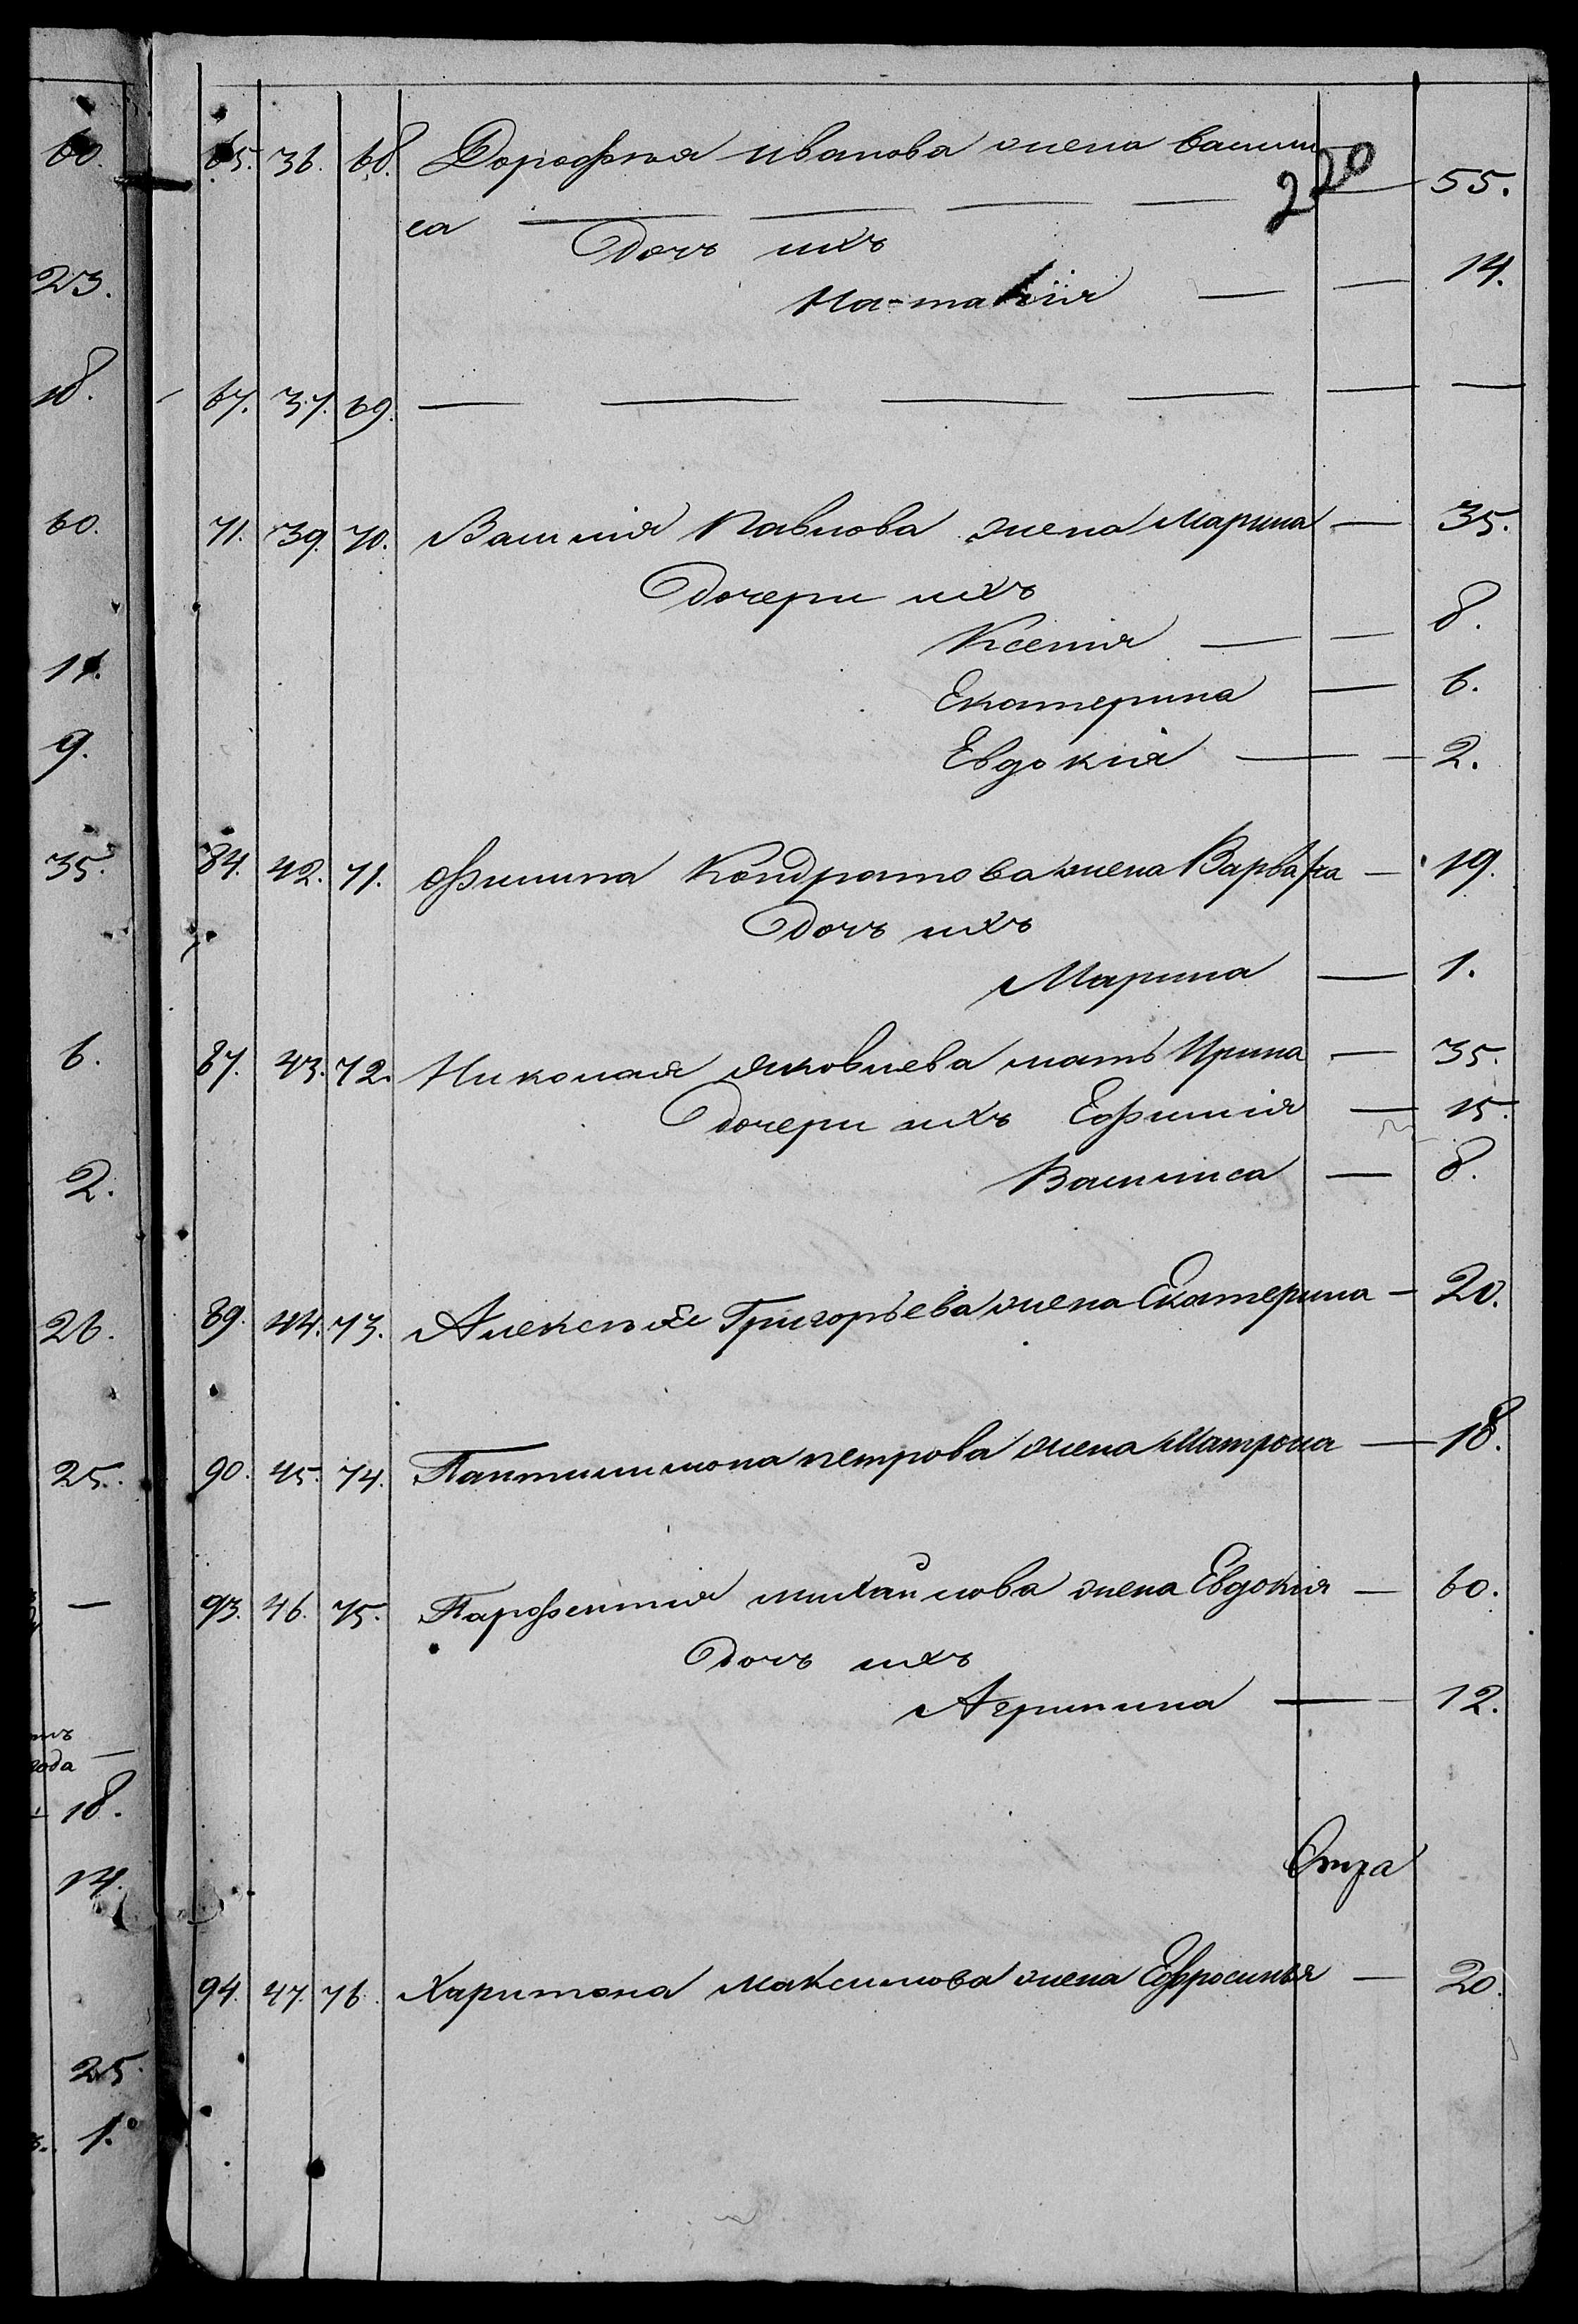 220
60. 65. 36. 68. Дорофѣя иванова жена васили — 55.
са — — — —
Дочь ихъ
23. На-талія — — 14.
18. 67. 37. 69. — — — — — —
60. 71. 39. 70. Василія Павлова жена Марина — 35.
Дочери ихъ
Ксенія — — 8.
11. Екатерина — 6.
9. Евдокія — — 2.
35. 84. 42. 71. Филипа Кондратова жена Варвара — 19.
Дочь ихъ
Марина — 1.
6. 87. 43. 72. Николая яковлева мать Ирина — 35.
Дочери ихъ Ефимія — 15.
2. Василиса — 8.
26. 89. 44. 73. Алексѣя Григорьева жена Екатерина — 20.
25. 90. 45. 74. Пантилимона петрова жена Матрона — 18.
— 93. 46. 75. Парфентія михайлова жена Евдокія — 60.
Дочь ихъ
Агрипина — 12.
года —
18.
14.
94. 47. 76. Харитона максимова жена Ефросинья — 20.
25.
1.